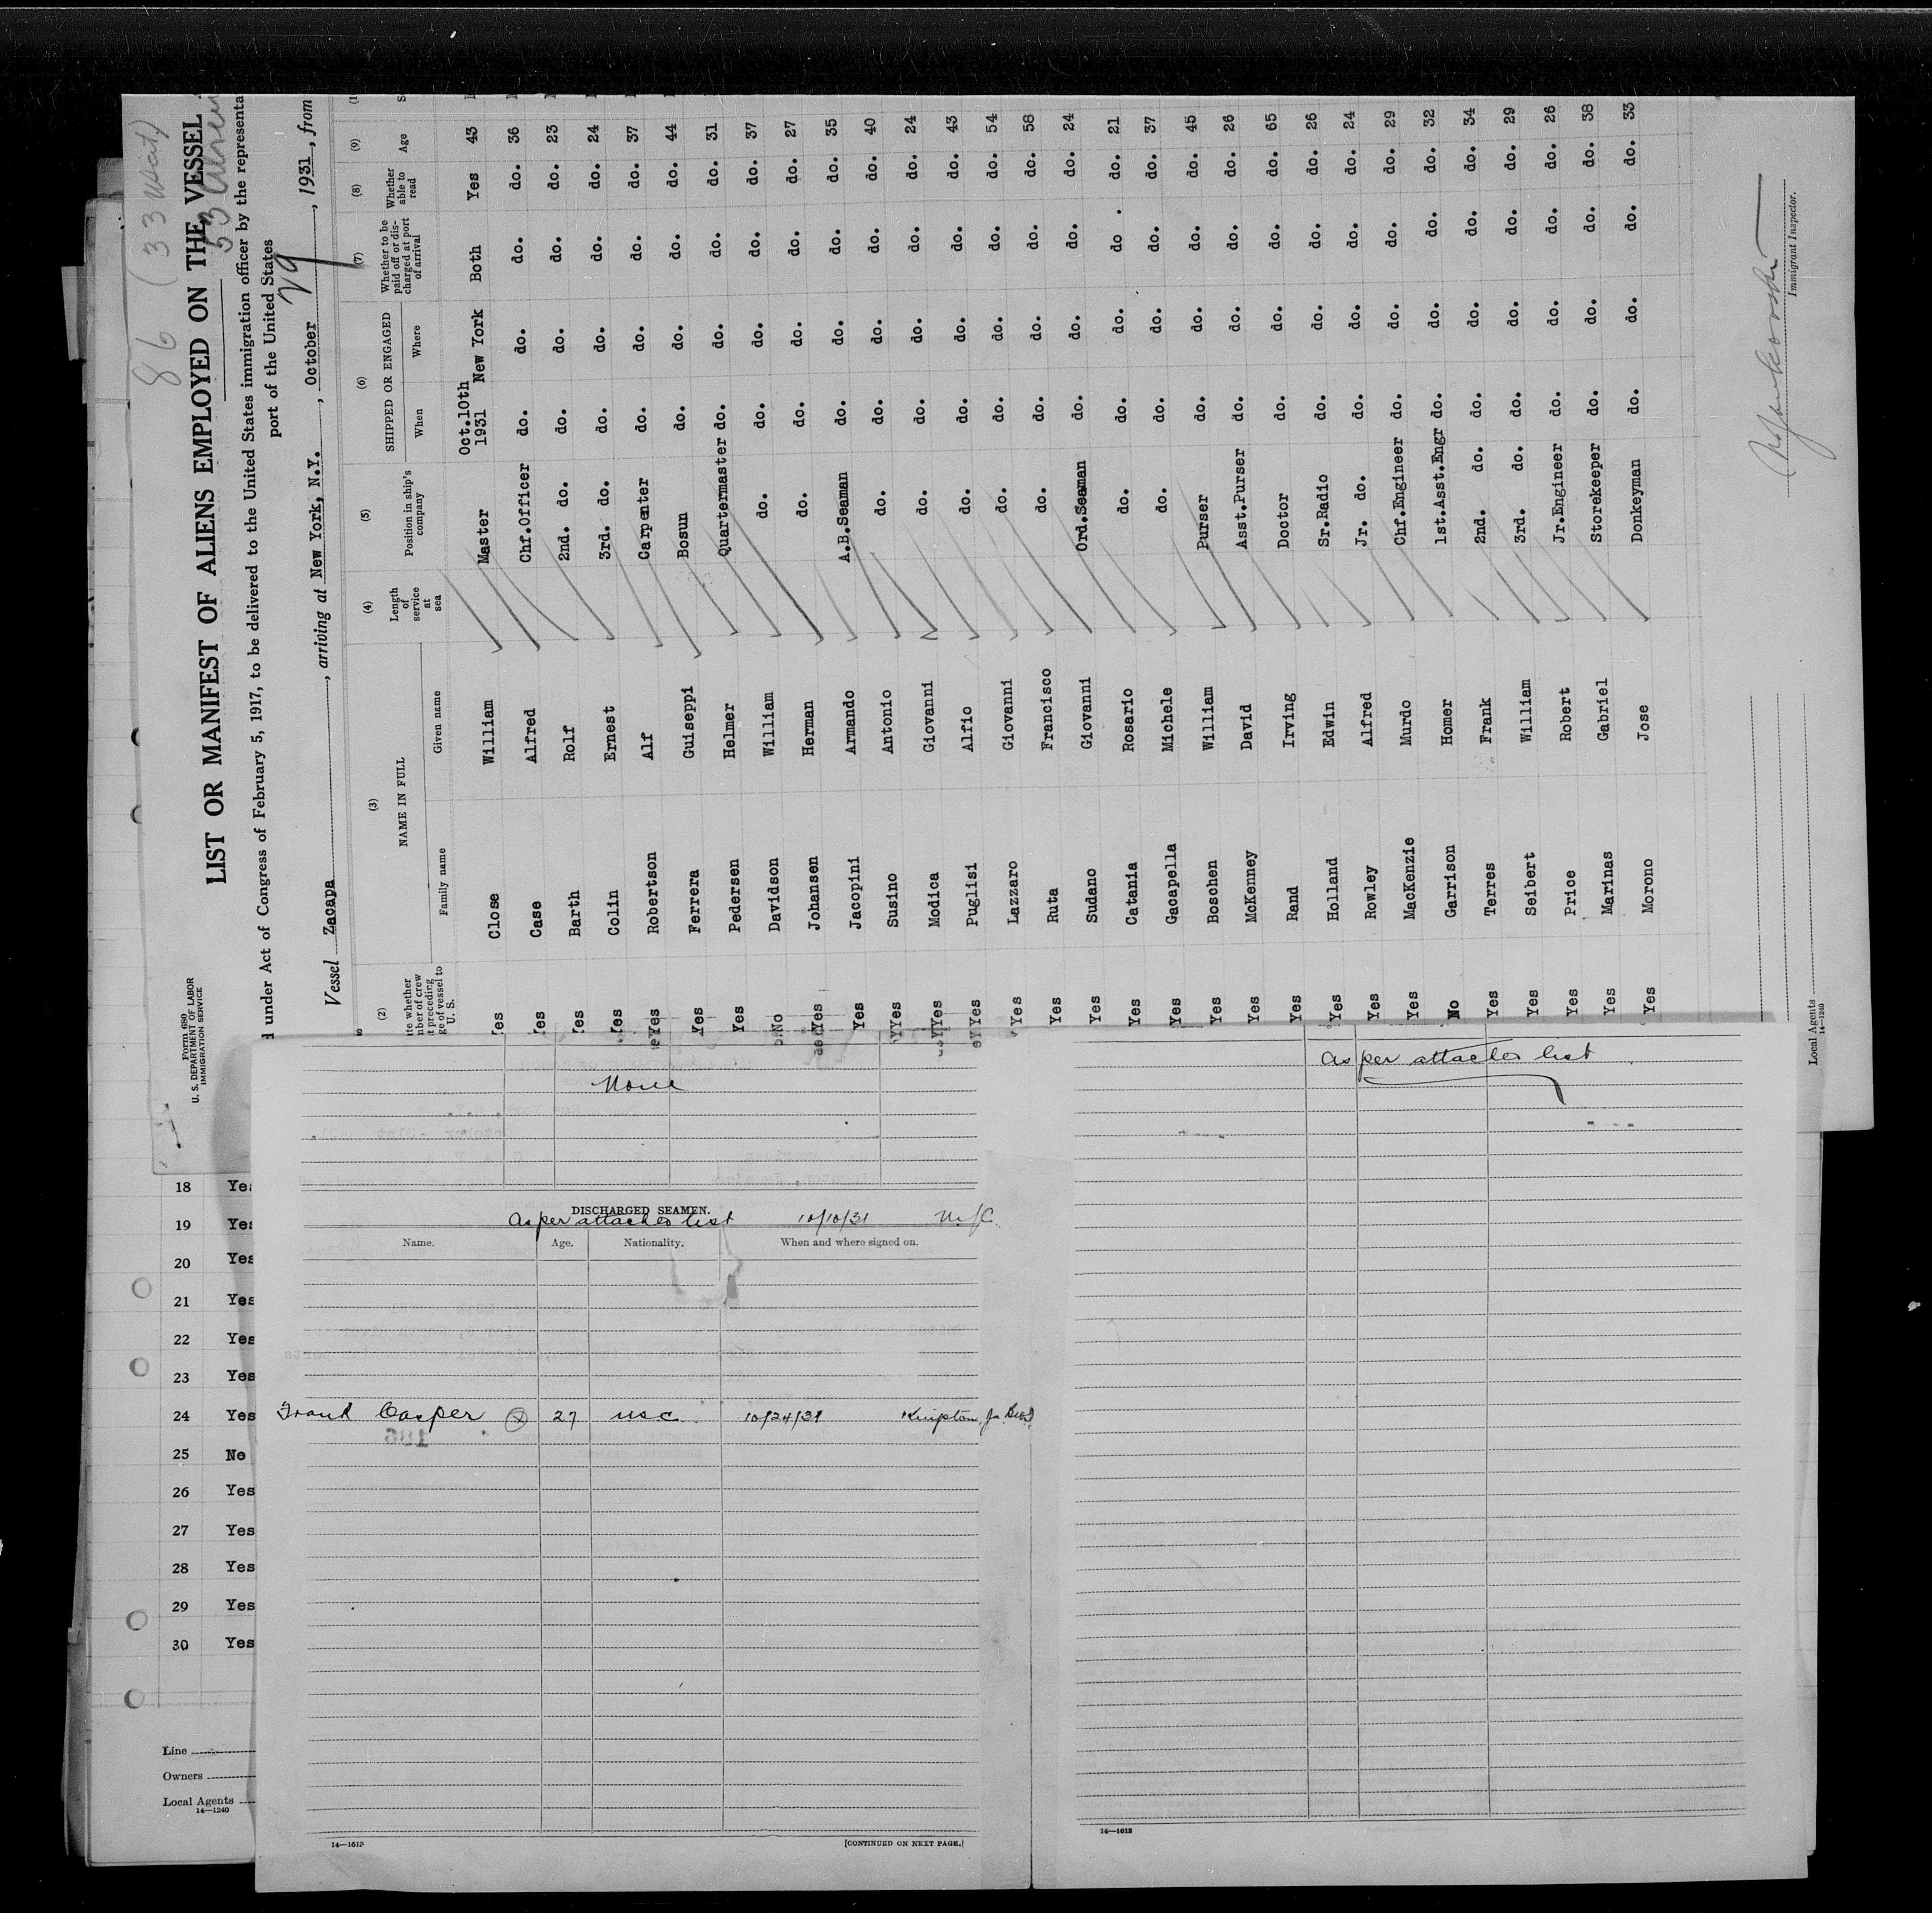 86 (33 usat)
53 Aliens
Form 680
U. S. DEPARTMENT OF LABOR
IMMIGRATION SERVICE
LIST OR MANIFEST OF ALIENS EMPLOYED ON THE VESSEL
under Act of Congress of February 5, 1917, to be delivered to the United States immigration officer by the representa
port of the United States
Vessel Zacapa, arriving at New York, N.Y., October 29, 1931, from
(2) (3) (4) (5) (6) (7) (8) (9)
NAME IN FULL
Family name Given name
Length of service at sea
Position in ship's company
SHIPPED OR ENGAGED
When Where
Whether to be paid off or discharged at port of arrival
Whether able to read
Age
Yes Close William Master Oct.10th 1931 New York Both Yes 43
Yes Case Alfred Chf.Officer do. do. do. do. 36
Yes Barth Rolf 2nd. do. do. do. do. do. 23
Yes Colin Ernest 3rd. do. do. do. do. do. 24
Yes Robertson Alf Carpenter do. do. do. do. 37
Yes Ferrera Guiseppi Bosun do. do. do. do. 44
Yes Pedersen Helmer Quartermaster do. do. do. do. 31
No Davidson William do. do. do. do. do. 37
Yes Johansen Herman do. do. do. do. do. 27
Yes Jacopini Armando A.B.Seaman do. do. do. do. 35
Yes Susino Antonio do. do. do. do. do. 40
Yes Modica Giovanni do. do. do. do. do. 24
Yes Puglisi Alfio do. do. do. do. do. 43
Yes Lazzaro Giovanni do. do. do. do. do. 54
Yes Ruta Francisco do. do. do. do. do. 58
Yes Sudano Giovanni Ord.Seaman do. do. do. do. 24
Yes Catania Rosario do. do. do. do. do. 21
Yes Gacapella Michele do. do. do. do. do. 37
Yes Boschen William Purser do. do. do. do. 45
Yes McKenney David Asst.Purser do. do. do. do. 26
Yes Rand Irving Doctor do. do. do. do. 65
Yes Holland Edwin Sr.Radio do. do. do. do. 26
Yes Rowley Alfred Jr. do. do. do. do. do. 24
Yes MacKenzie Murdo Chf.Engineer do. do. do. do. 29
No Garrison Homer 1st.Asst.Engr do. do. do. do. 32
Yes Terres Frank 2nd. do. do. do. do. do. 34
Yes Seibert William 3rd. do. do. do. do. do. 29
Yes Price Robert Jr.Engineer do. do. do. do. 26
Yes Marinas Gabriel Storekeeper do. do. do. do. 38
Yes Morono Jose Donkeyman do. do. do. do. 33
Immigrant Inspector.
Local Agents
14—1240
None
DISCHARGED SEAMEN.
As per attached list 10/10/31
Name. Age. Nationality. When and where signed on.
Frank Casper X 27 USC 10/24/31 Kingston, Ja
14—1613
[CONTINUED ON NEXT PAGE.]
As per attached list
14—1613
18 Yes
19 Yes
20 Yes
21 Yes
22 Yes
23 Yes
24 Yes
25 No
26 Yes
27 Yes
28 Yes
29 Yes
30 Yes
Line
Owners
Local Agents
14—1240